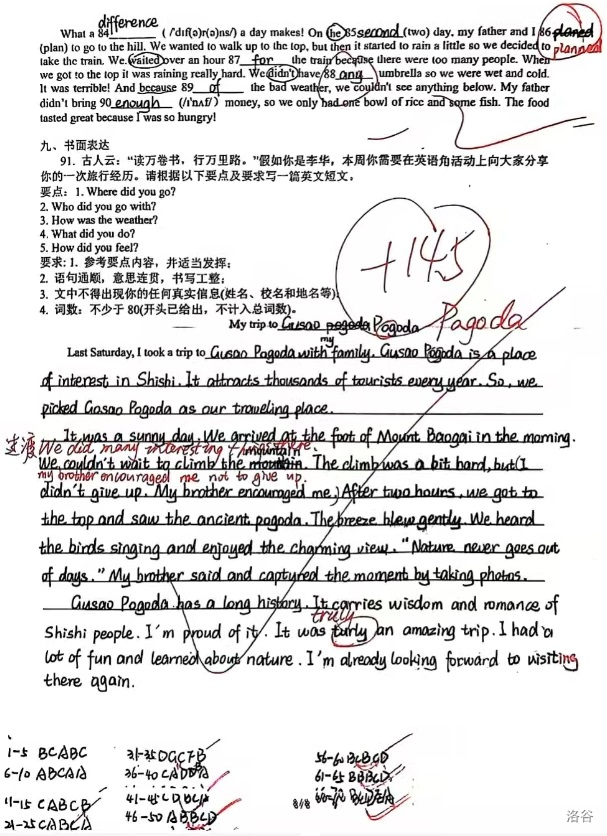 difference
What a 84 ( /'dɪf(ə)r(ə)ns/) a day makes! On the 85 second (two) day, my father and I 86 planed
(plan) to go to the hill. We wanted to walk up to the top, but then it started to rain a little so we decided to
planned
take the train. We waited over an hour 87 for the train because there were too many people. When
we got to the top it was raining really hard. We didn't have 88 any umbrella so we were wet and cold.
It was terrible! And because 89 of the bad weather, we couldn't see anything below. My father
didn't bring 90 enough (/ɪ'nʌf/ ) money, so we only had one bowl of rice and some fish. The food
tasted great because I was so hungry!
九、书面表达
91. 古人云：“读万卷书，行万里路。”假如你是李华，本周你需要在英语角活动上向大家分享
你的一次旅行经历。请根据以下要点及要求写一篇英文短文。
要点：1. Where did you go?
2. Who did you go with?
3. How was the weather?
4. What did you do?
5. How did you feel?
要求：1. 参考要点内容，并适当发挥；
2. 语句通顺，意思连贯，书写工整；
3. 文中不得出现你的任何真实信息(姓名、校名和地名等)；
4. 词数：不少于 80(开头已给出，不计入总词数)。
+14.5
My trip to Gusao pogoda Pogoda
Pagoda
my
Last Saturday, I took a trip to Gusao Pogoda with family. Gusao Pogoda is a place
of interest in Shishi. It attracts thousands of tourists every year. So, we
picked Gosao Pogoda as our traveling place.
It was a sunny day. We arrived at the foot of Mount Baogai in the morning.
过渡 We did many interesting things there.
mountain
We couldn't wait to climb the mounthin. The climb was a bit hard, but I
my brother encouraged me not to give up.
didn't give up. My brother encouraged me. After two hours, we got to
the top and saw the ancient pogoda. The breeze blew gently. We heard
the birds singing and enjoyed the charming view. "Nature never goes out
of days." My brother said and captured the moment by taking photos.
Gusao Pogoda has a long history. It carries wisdom and romance of
truly
Shishi people. I'm proud of it. It was turly an amazing trip. I had a
lot of fun and learned about nature. I'm already looking forward to visiting
there again.
1-5 BCABC
31-35 DGCFB
56-60 BCBCD
6-10 ABCAA
36-40 CADDA
61-65 BBBCD
11-15 CABCB
41-45
21-25 CABCA
46-50 ABBCD
洛谷